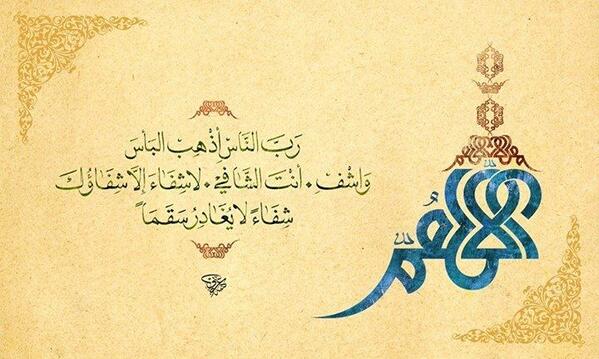 اللهم
رَبَّ النَّاسِ أَذْهِبْ البَأسَ
وَاشْفِ • أَنْتَ الشَّافِي • لاشِفَاءَ إِلَّا شِفَاؤُكَ
شِفَاءً لا يُغَادِرُ سَقَمَاً